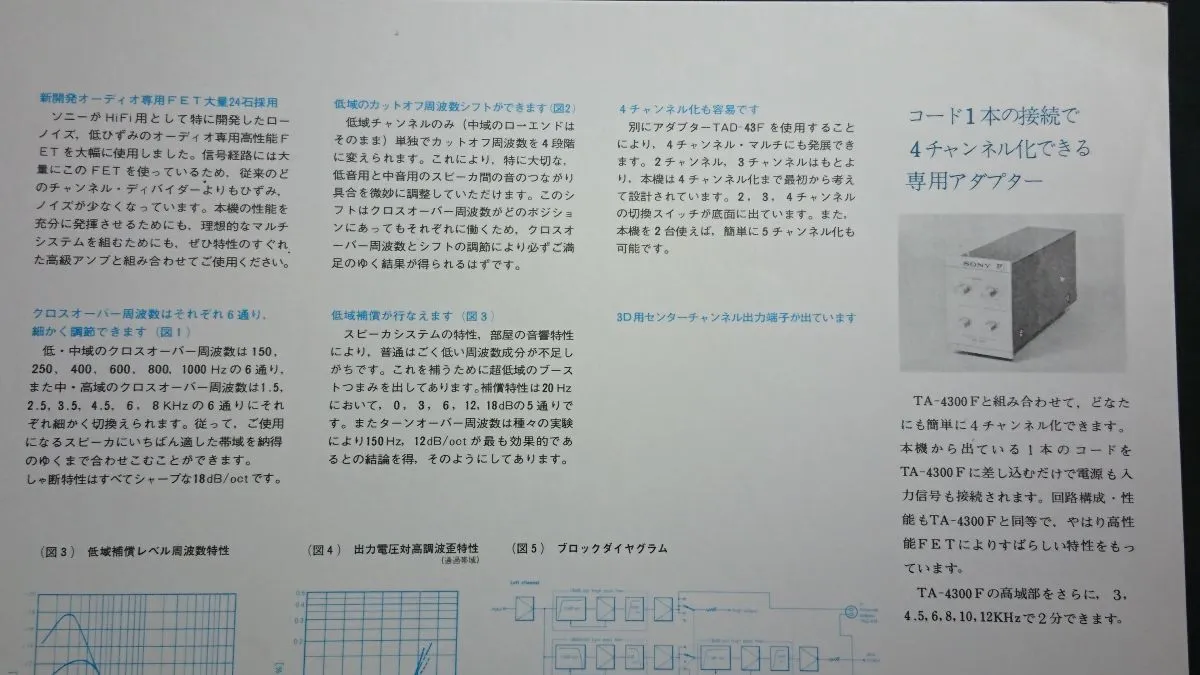 新開発オーディオ専用FET大量24石採用
ソニーがHiFi用として特に開発したロー
ノイズ，低ひずみのオーディオ専用高性能F
ETを大幅に使用しました。信号経路には大
量にこのFETを使っているため，従来のど
のチャンネル・ディバイダーよりもひずみ，
ノイズが少なくなっています。本機の性能を
充分に発揮させるためにも，理想的なマルチ
システムを組むためにも，ぜひ特性のすぐれ
た高級アンプと組み合わせてご使用ください。
クロスオーバー周波数はそれぞれ6通り，
細かく調節できます（図1）
低・中域のクロスオーバー周波数は150，
250，400，600，800，1000Hzの6通り，
また中・高域のクロスオーバー周波数は1.5，
2.5，3.5，4.5，6，8KHzの6通りにそれ
ぞれ細かく切換えられます。従って，ご使用
になるスピーカにいちばん適した帯域を納得
のゆくまで合わせこむことができます。
しゃ断特性はすべてシャープな18dB/octです。
低域のカットオフ周波数シフトができます（図2）
低域チャンネルのみ（中域のローエンドは
そのまま）単独でカットオフ周波数を4段階
に変えられます。これにより，特に大切な，
低音用と中音用のスピーカ間の音のつながり
具合を微妙に調整していただけます。このシ
フトはクロスオーバー周波数がどのポジショ
ンにあってもそれぞれに働くため，クロスオ
ーバー周波数とシフトの調節により必ずご満
足のゆく結果が得られるはずです。
低域補償が行なえます（図3）
スピーカシステムの特性，部屋の音響特性
により，普通はごく低い周波数成分が不足し
がちです。これを補うために超低域のブース
トつまみを出してあります。補償特性は20Hz
において，0，3，6，12，18dBの5通りで
す。またターンオーバー周波数は種々の実験
により150Hz，12dB/octが最も効果的であ
るとの結論を得，そのようにしてあります。
4チャンネル化も容易です
別にアダプターTAD-43Fを使用すること
により，4チャンネル・マルチにも発展でき
ます。2チャンネル，3チャンネルはもとよ
り，本機は4チャンネル化まで最初から考え
て設計されています。2，3，4チャンネル
の切換スイッチが底面に出ています。また，
本機を2台使えば，簡単に5チャンネル化も
可能です。
3D用センターチャンネル出力端子が出ています
コード1本の接続で
4チャンネル化できる
専用アダプター
SONY
TA-4300Fと組み合わせて，どなた
にも簡単に4チャンネル化できます。
本機から出ている1本のコードを
TA-4300Fに差し込むだけで電源も入
力信号も接続されます。回路構成・性
能もTA-4300Fと同等で，やはり高性
能FETによりすばらしい特性をもっ
ています。
TA-4300Fの高域部をさらに，3，
4.5，6，8，10，12KHzで2分できます。
（図3）低域補償レベル周波数特性
（図4）出力電圧対高調波歪特性
（通過帯域）
0.5
0.4
0.3
0.2
（図5）ブロックダイヤグラム
Left channel